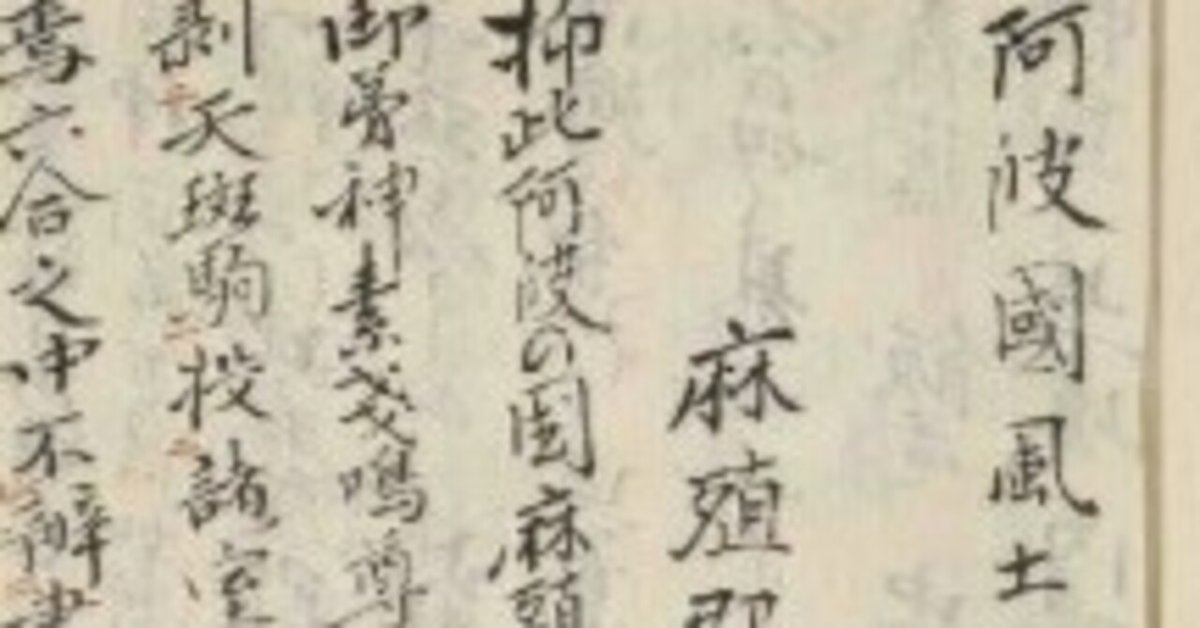 阿波國風土
麻殖郡
抑此阿波の国麻殖
御曽神素戔嗚尊
剥天斑駒投諸室
焉六合之中不辨昼